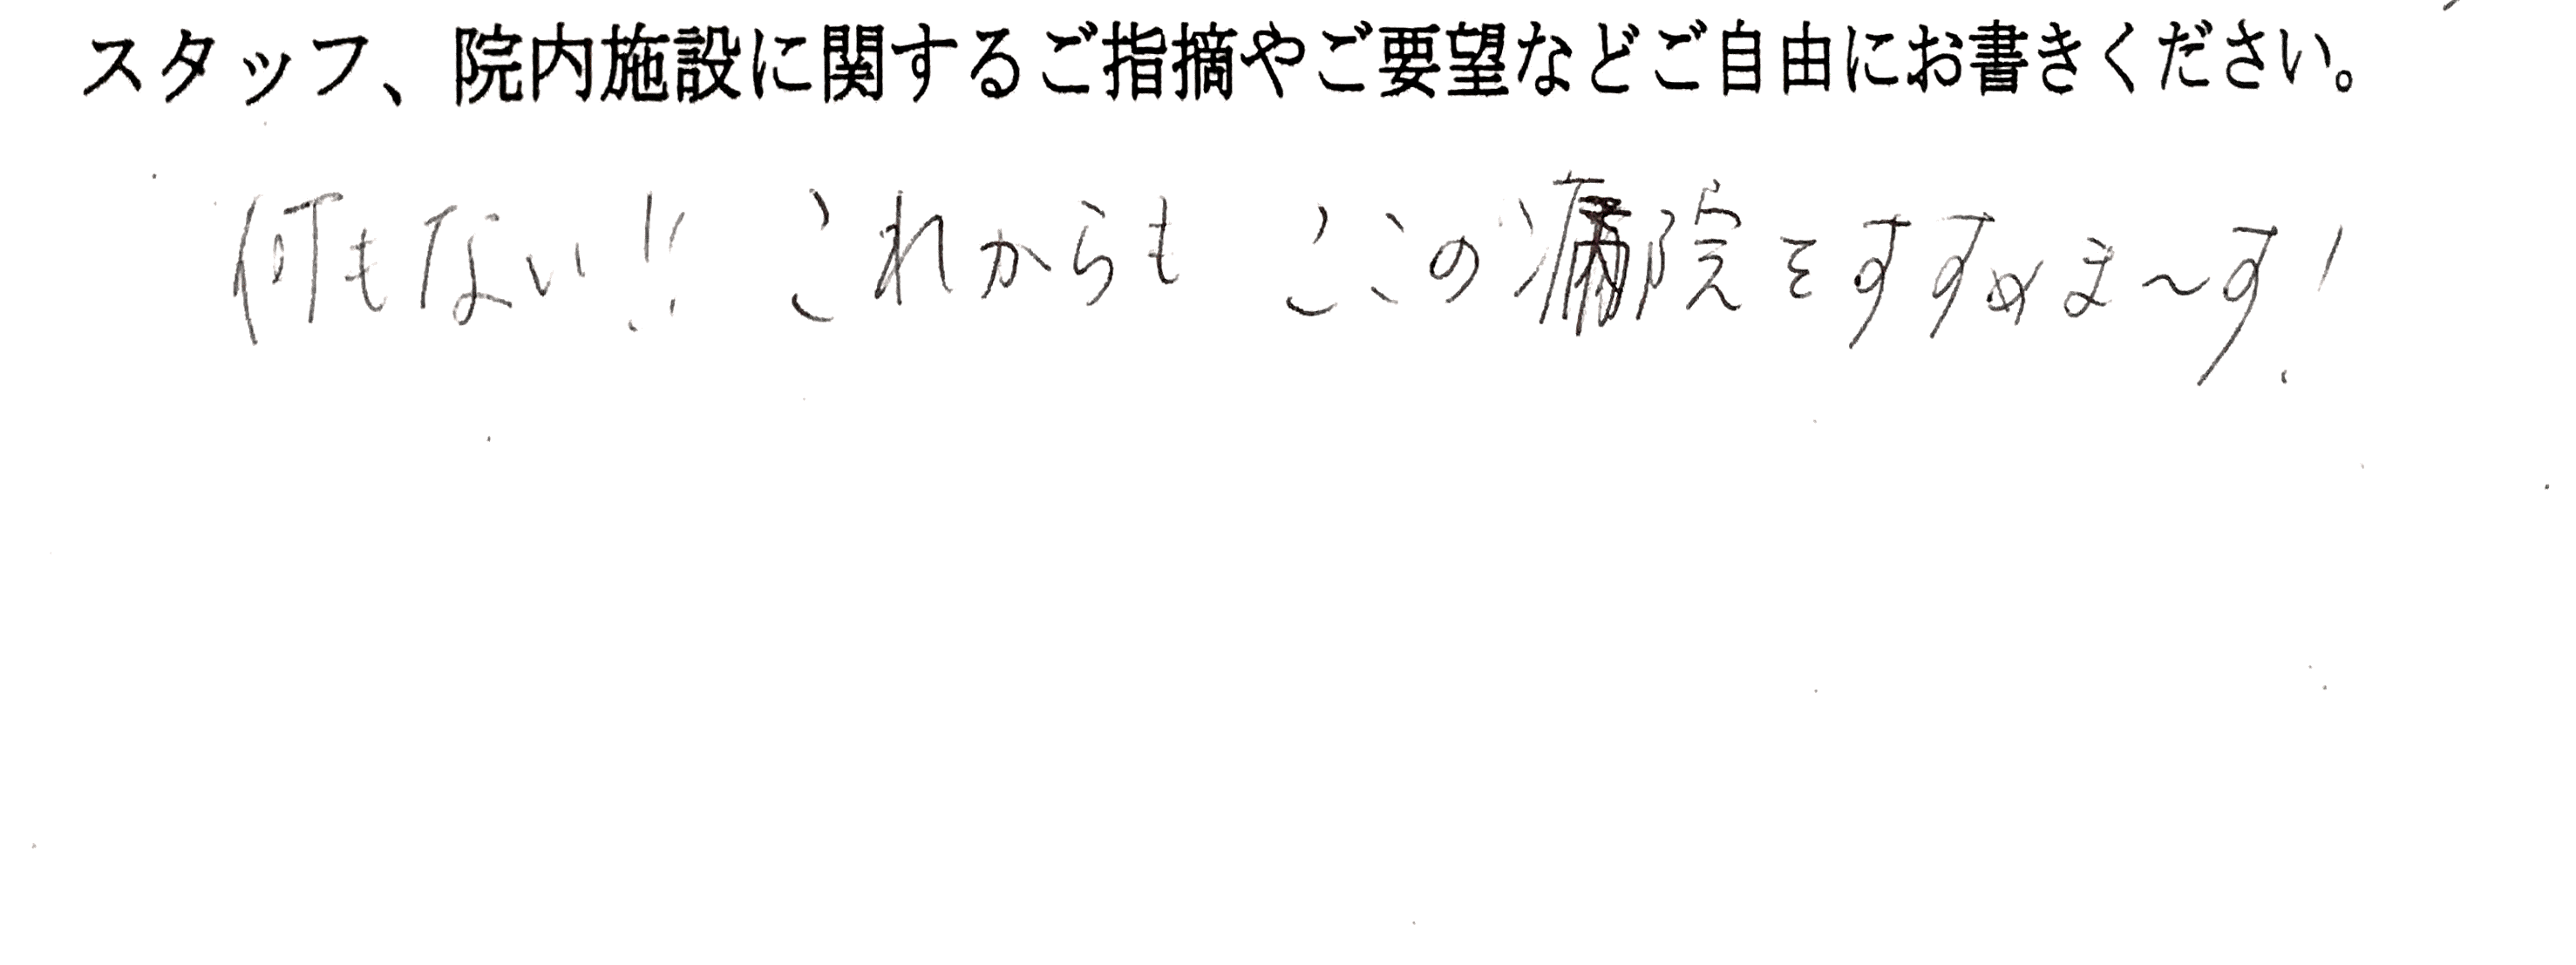 スタッフ、院内施設に関するご指摘やご要望などご自由にお書きください。
何もない!! これからも ここの病院をすすめま〜す!